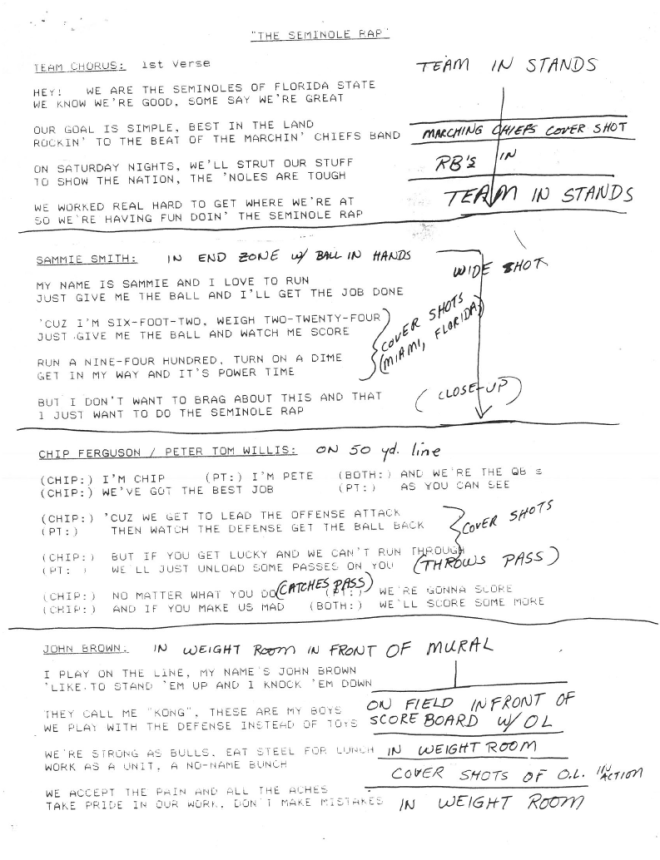 "THE SEMINOLE RAP"
TEAM CHORUS: 1st verse
TEAM IN STANDS
HEY! WE ARE THE SEMINOLES OF FLORIDA STATE
WE KNOW WE'RE GOOD, SOME SAY WE'RE GREAT
OUR GOAL IS SIMPLE, BEST IN THE LAND
ROCKIN' TO THE BEAT OF THE MARCHIN' CHIEFS BAND
MARCHING CHIEFS COVER SHOT
ON SATURDAY NIGHTS, WE'LL STRUT OUR STUFF
TO SHOW THE NATION, THE 'NOLES ARE TOUGH
RB's IN
WE WORKED REAL HARD TO GET WHERE WE'RE AT
SO WE'RE HAVING FUN DOIN' THE SEMINOLE RAP
TEAM IN STANDS
SAMMIE SMITH: IN END ZONE w/ BALL IN HANDS
WIDE SHOT
MY NAME IS SAMMIE AND I LOVE TO RUN
JUST GIVE ME THE BALL AND I'LL GET THE JOB DONE
'CUZ I'M SIX-FOOT-TWO, WEIGH TWO-TWENTY-FOUR
JUST GIVE ME THE BALL AND WATCH ME SCORE
COVER SHOTS
(MIAMI, FLORIDA)
RUN A NINE-FOUR HUNDRED, TURN ON A DIME
GET IN MY WAY AND IT'S POWER TIME
BUT I DON'T WANT TO BRAG ABOUT THIS AND THAT
I JUST WANT TO DO THE SEMINOLE RAP
(CLOSE-UP)
CHIP FERGUSON / PETER TOM WILLIS: ON 50 yd. line
(CHIP:) I'M CHIP (PT:) I'M PETE (BOTH:) AND WE'RE THE QB s
(CHIP:) WE'VE GOT THE BEST JOB (PT:) AS YOU CAN SEE
(CHIP:) 'CUZ WE GET TO LEAD THE OFFENSE ATTACK
(PT:) THEN WATCH THE DEFENSE GET THE BALL BACK
COVER SHOTS
(CHIP:) BUT IF YOU GET LUCKY AND WE CAN'T RUN THROUGH
(PT: ) WE'LL JUST UNLOAD SOME PASSES ON YOU (THROWS PASS)
(CATCHES PASS)
(CHIP:) NO MATTER WHAT YOU DO (PT:) WE'RE GONNA SCORE
(CHIP:) AND IF YOU MAKE US MAD (BOTH:) WE'LL SCORE SOME MORE
JOHN BROWN. IN WEIGHT ROOM IN FRONT OF MURAL
I PLAY ON THE LINE, MY NAME'S JOHN BROWN
'LIKE TO STAND 'EM UP AND I KNOCK 'EM DOWN
THEY CALL ME "KONG", THESE ARE MY BOYS
WE PLAY WITH THE DEFENSE INSTEAD OF TOYS
ON FIELD IN FRONT OF
SCOREBOARD w/ OL
WE'RE STRONG AS BULLS, EAT STEEL FOR LUNCH
WORK AS A UNIT, A NO-NAME BUNCH
IN WEIGHT ROOM
COVER SHOTS OF O.L. IN ACTION
WE ACCEPT THE PAIN AND ALL THE ACHES
TAKE PRIDE IN OUR WORK, DON'T MAKE MISTAKES
IN WEIGHT ROOM